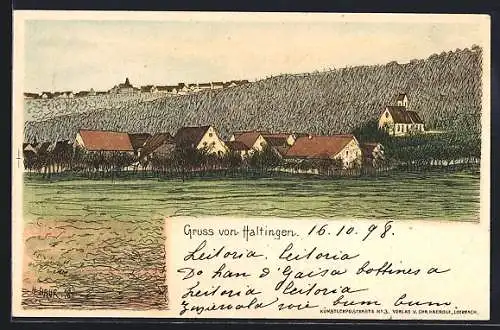 Gruss von Haltingen. 16. 10. 98.
Leitoria. Leitoria
Do han d'Gaisa bottines a
Leitoria Leitoria
wie bum bum.
KÜNSTLERPOSTKARTE No. 3. VERLAG V. CHR. HAERDLE, LOERRACH.
H. DAUR